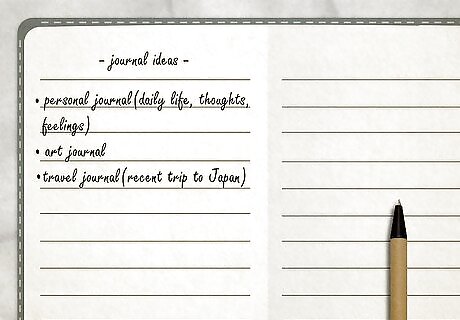 - journal ideas -
• personal journal(daily life, thoughts,
feelings)
• art journal
• travel journal(recent trip to Japan)